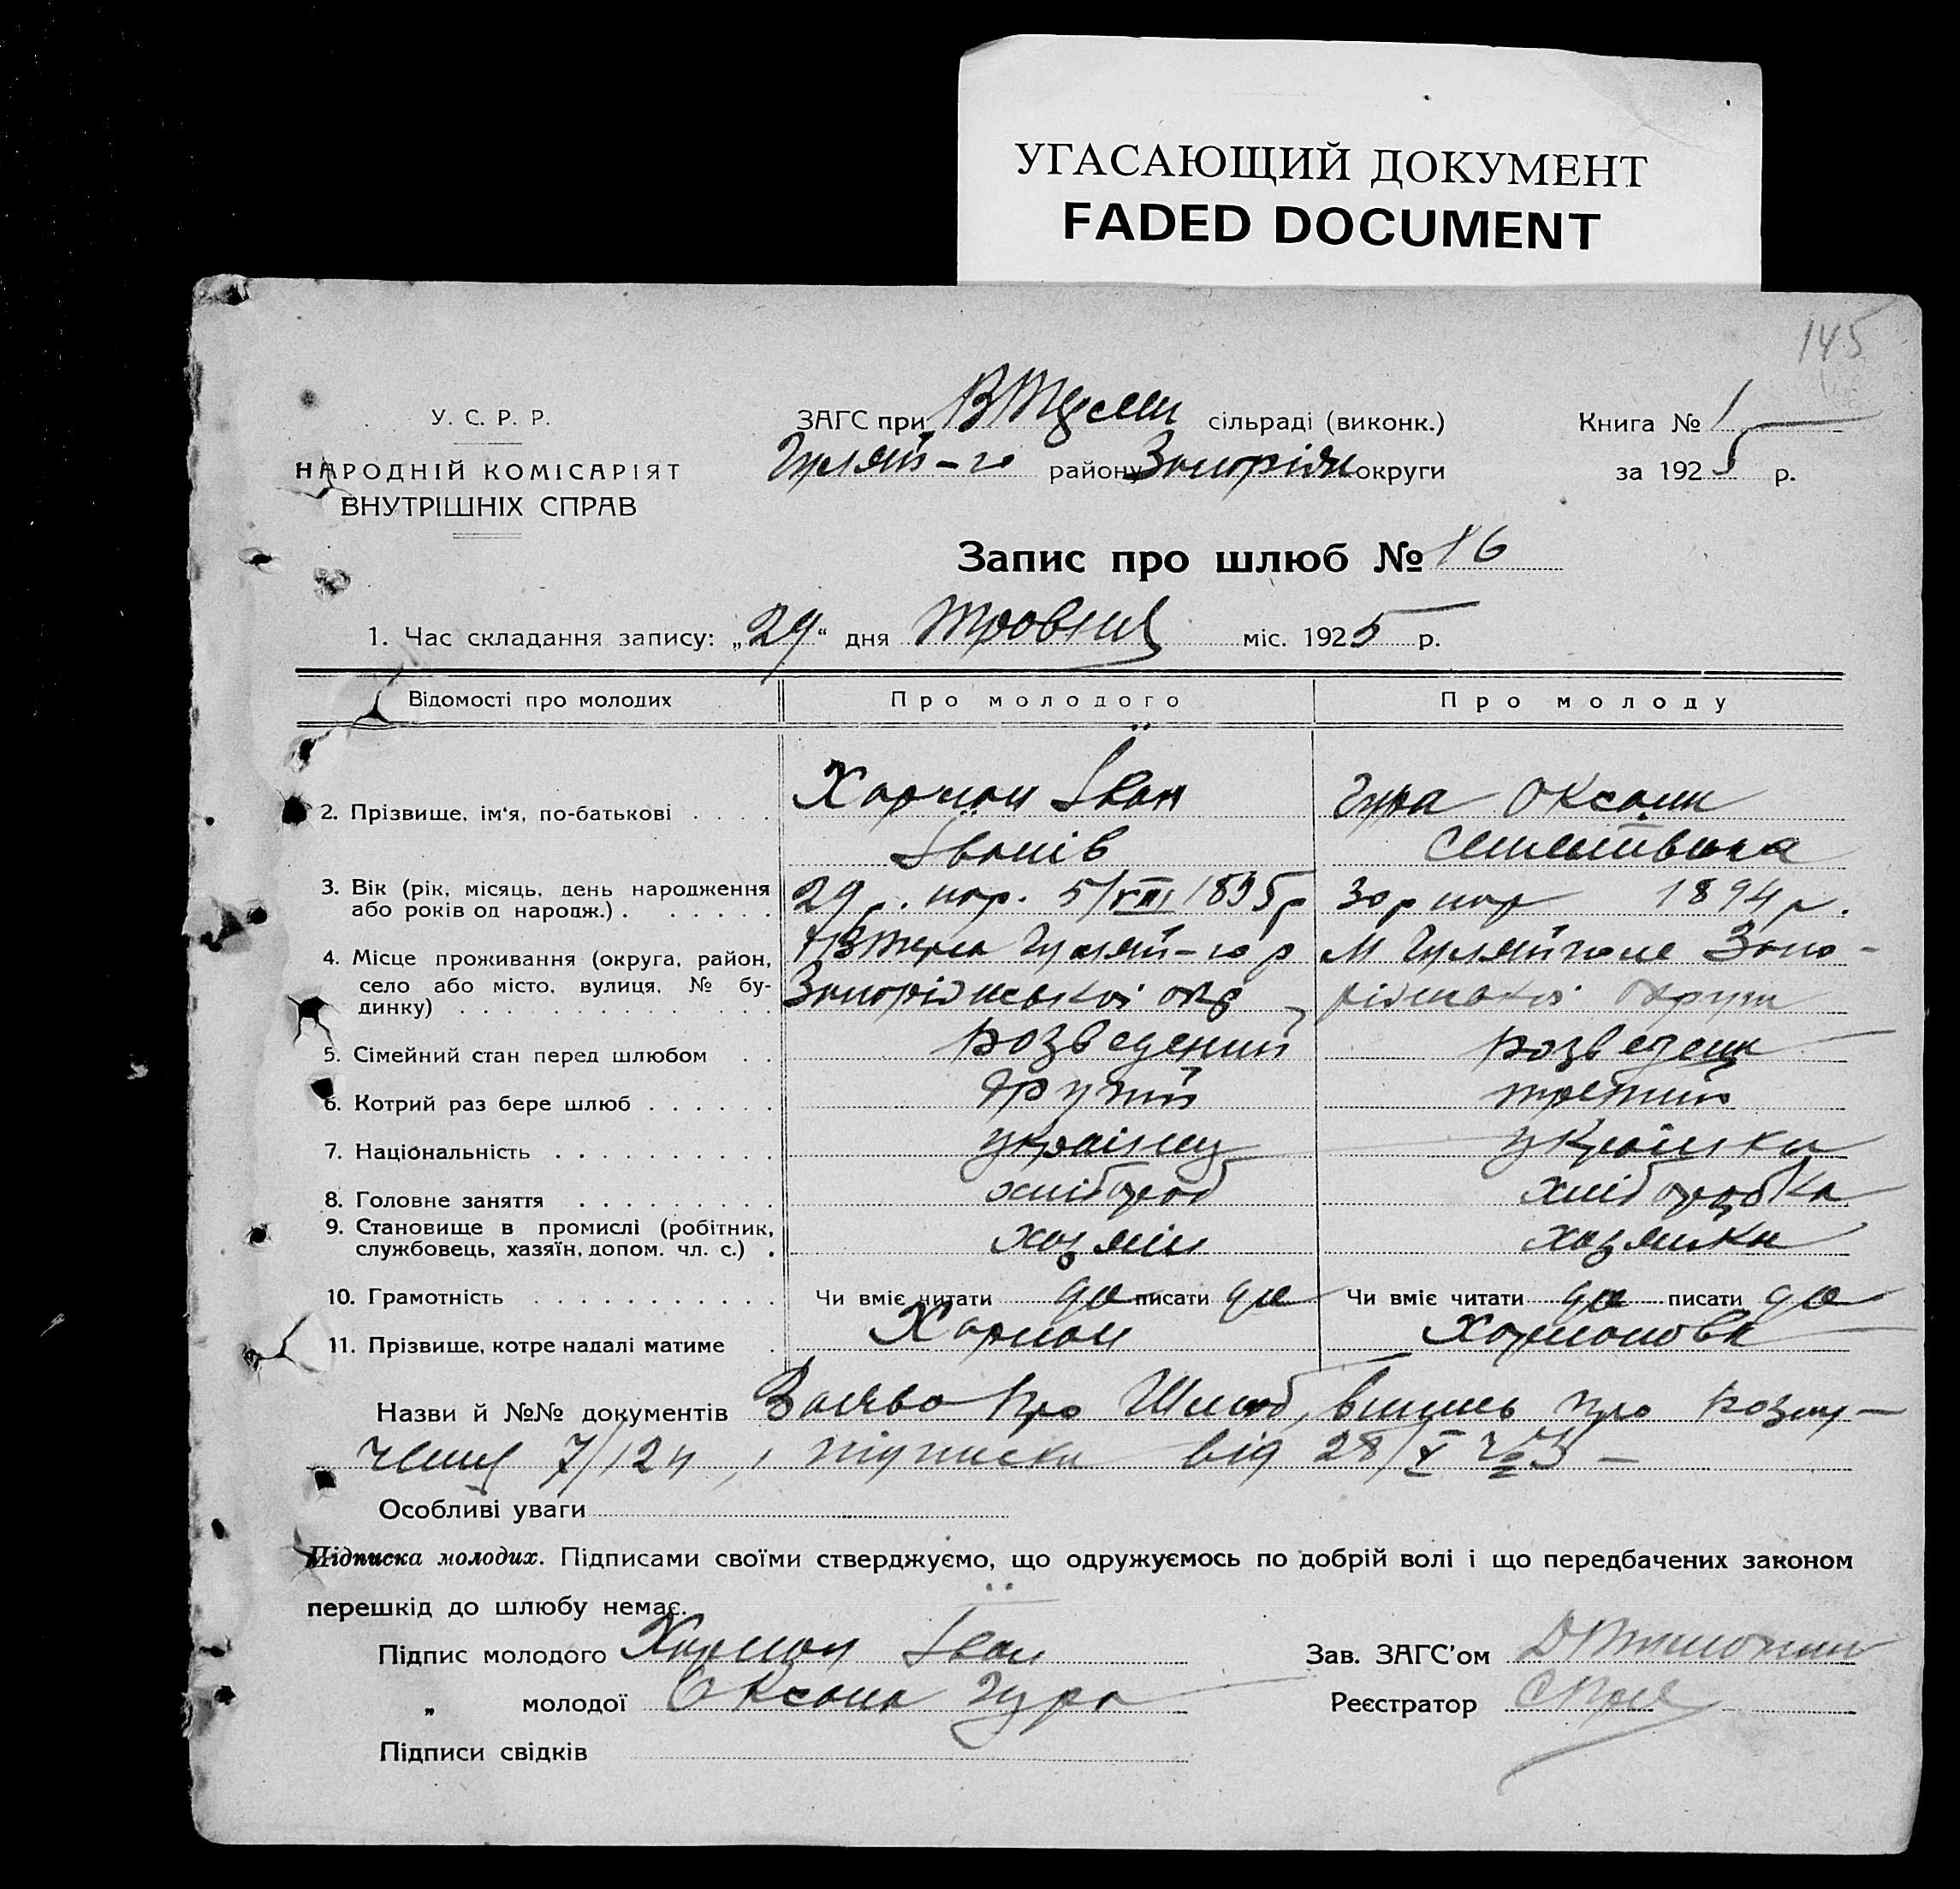 УГАСАЮЩИЙ ДОКУМЕНТ
FADED DOCUMENT
145
У. С. Р. Р.
НАРОДНІЙ КОМІСАРІЯТ
ВНУТРІШНІХ СПРАВ
ЗАГС при сільраді (виконк.)
Гуляй-го району Запоріж округи
Книга № 1
за 1925 р.
Запис про шлюб № 16
1. Час складання запису: „29“ дня травня міс. 1925 р.
Відомості про молодих
Про молодого
Про молоду
2. Прізвище, ім'я, по-батькові . . . .
Харман Іван
Іванів
Гура Оксана
3. Вік (рік, місяць, день народження
або років од народж.) . . . . . . .
29 р. нар. 5/VIII 1895 р
30 р нар 1894 р.
4. Місце проживання (округа, район,
село або місто, вулиця, № бу-
динку) . . . . . . . . . . . . . .
Гуляй-го р
Запоріжської окр
М Гуляйполе Запо-
ріжської округи
5. Сімейний стан перед шлюбом . .
розведений
розведена
6. Котрий раз бере шлюб . . . . . .
другий
третий
7. Національність . . . . . . . . . .
українец
українка
8. Головне заняття . . . . . . . . .
хлібороб
хліборобка
9. Становище в промислі (робітник,
службовець, хазяїн, допом. чл. с.) .
хозяїн
хозяйка
10. Грамотність . . . . . . . . . . .
Чи вміє читати да писати да
Чи вміє читати да писати да
11. Прізвище, котре надалі матиме .
Харман
Харманова
Назви й №№ документів Заява про Шлюб, випись про розлу-
чення 7/124, і підписка від 28/V
Особливі уваги
Підписка молодих. Підписами своїми стверджуємо, що одружуємось по добрій волі і що передбачених законом
перешкід до шлюбу немає.
Підпис молодого Харман Іван
„ молодої Оксана Гура
Підписи свідків
Зав. ЗАГС'ом
Реєстратор